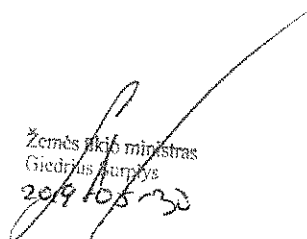 Žemės ūkio ministras
Giedrius Surplys
2019-05-30